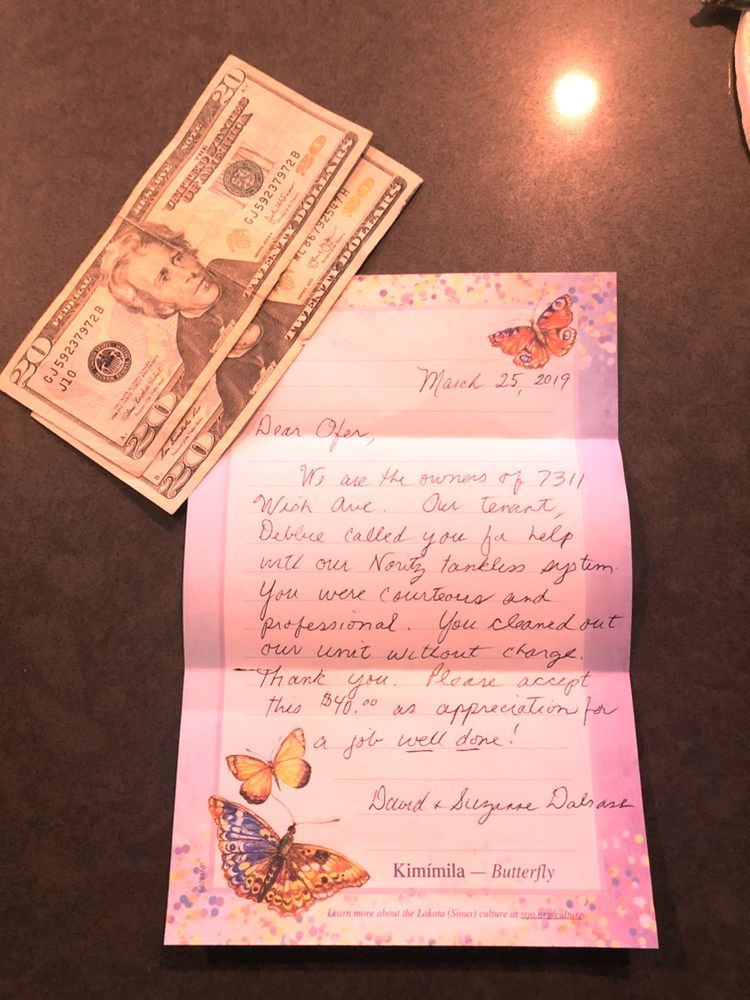 20
THE
UNITED STATES
OF AMERICA
GJ59237972B
20
TWENTY DOLLARS
ML86792547H
20
TWENTY DOLLARS
GJ59237972B
J10
20
20
20
March 25, 2019
Dear Ofer,
We are the owners of 7311
Wish Ave. Our tenant,
Debbie called you for help
with our Noritz tankless system.
You were courteous and
professional. You cleaned out
our unit without charge.
Thank you. Please accept
this $40.00 as appreciation for
a job well done!
David & Suzanne Dalsass
Kimímila — Butterfly
Learn more about the Lakota (Sioux) culture at stjo.org/culture.